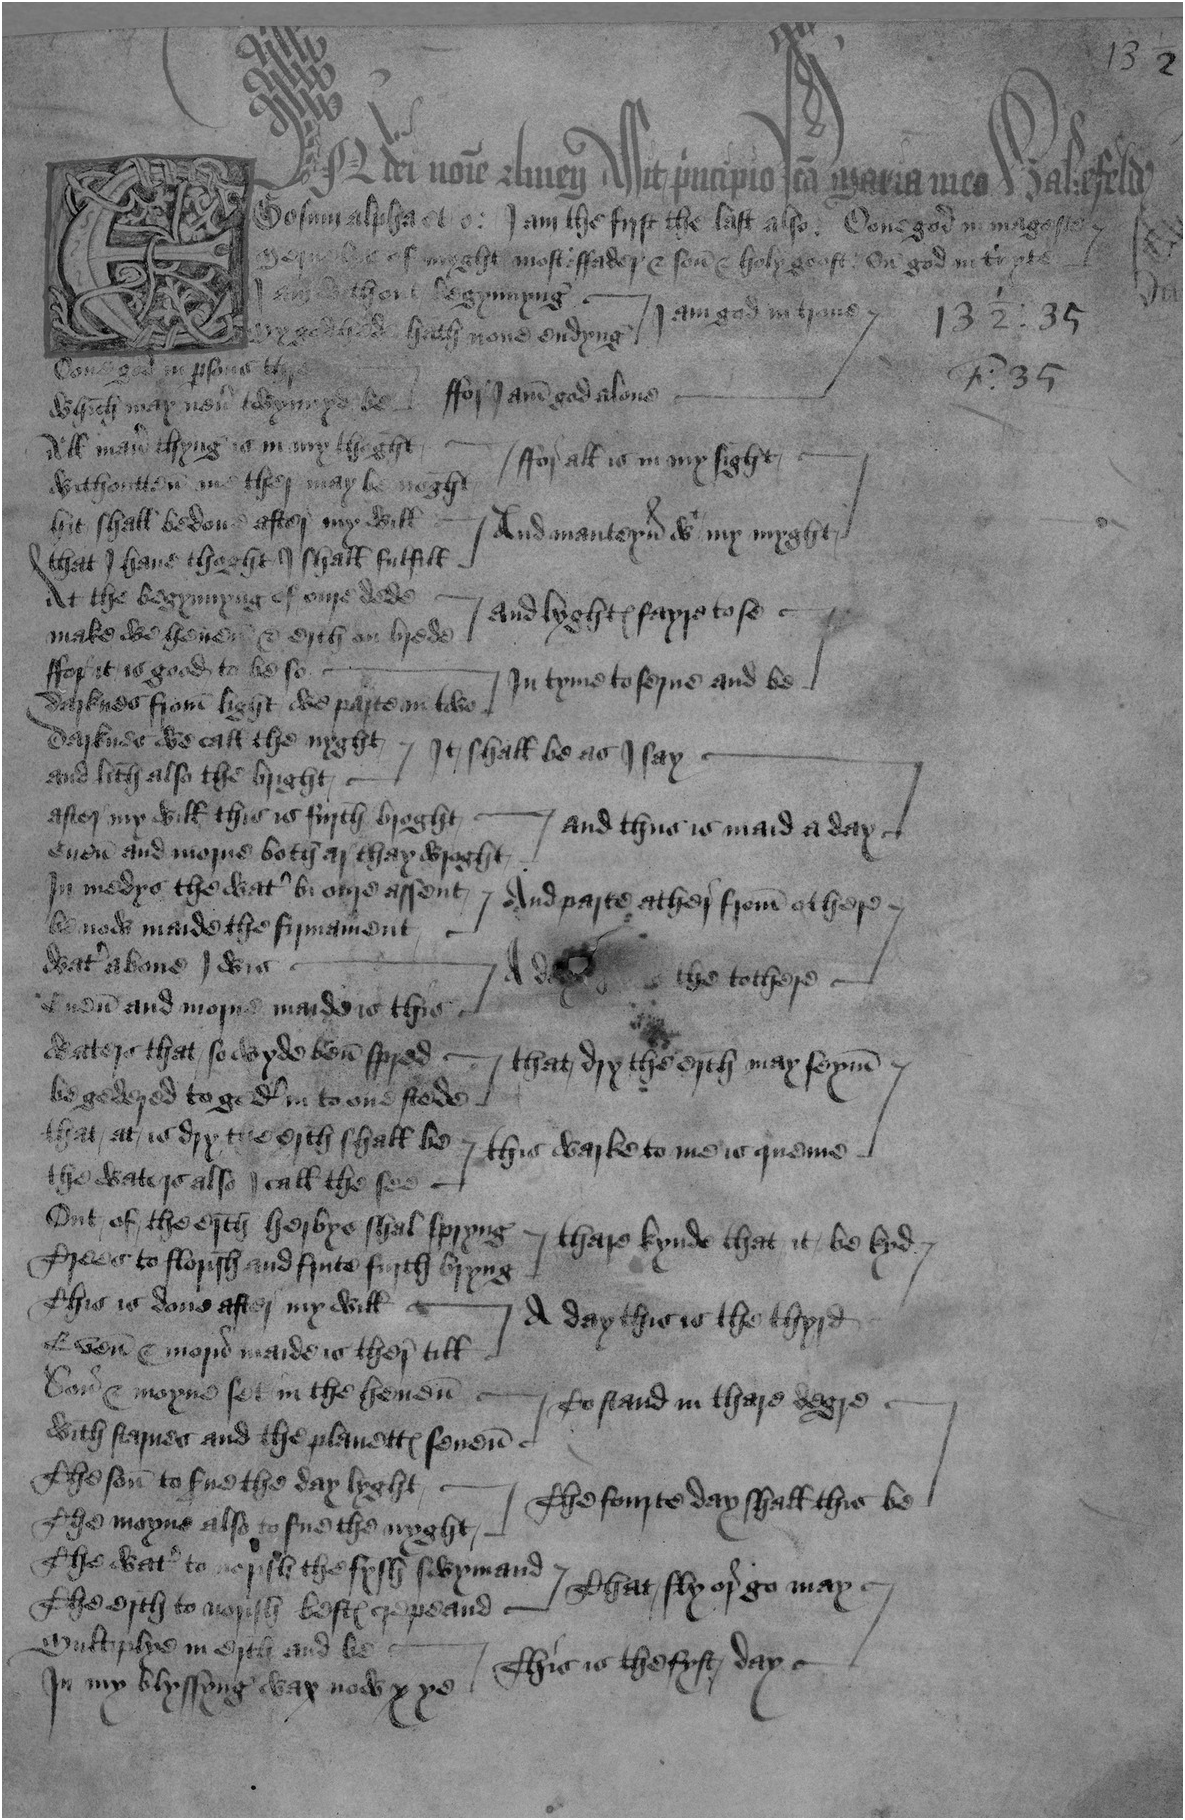 13 1/2
In dei noīe amen Assit pͥncipio sc̄a maria meo Wakefeld
Ego sum alpha et o: I am the fyrst the last also: Oone god in mageste
of myght most ffader & son̄ & holy goost On god in trynte
I am without begynnyng
My godhede hath none endyng
I am god in trone
13 1/2 : 35
F: 35
Oone god in persons thre
which may neuer twynnyd be
ffor I am god alone
All maner thyng is in my thoght
withoutten me ther may be noght
ffor all is in my sight
hit shall be done after my will
that I haue thoght I shall fulfill
And manteyn wͭ my myght
At the begynnyng of oure dede
make we heuen & erth on brede
and lyghtꝭ fayre to se
ffor it is good to be so
darknes from light we parte in two
In tyme to serue and be
darknes we call the nyght
and lith also the bright
It shall be as I say
after my will this is furth broght
euen and morne both ar thay wroght
and thus is maid a day
In medys the watͬ bi oure assent
be now maide the firmament
And parte ather from othere
watͬ aboue I wis
Euen and morne maide is this
A day the tothere
waters that so wyde ben spred
be gedered to gedͬ in to one stede
that dry the erth may seym
that at is dry the erth shall be
the waters also I call the see
this warke to me is queme
Out of the erth herbys shal spryng
Trees to florish and frute furth bryng
thare kynde that it be kyd
This is done after my will
Euen & morn maide is ther till
A day this is the thyrd
Son & moyne set in the heuen
with starnes and the planettꝭ seuen
To stand in thare degre
The son to serue the day lyght
The moyne also to serue the nyght
The fourte day shall this be
The watͬ to norish the fysh swymand
The erth to norish bestꝭ crepeand
That fly or go may
Multiplye in erth and be
In my blyssyng wax now ye
This is the fyft day